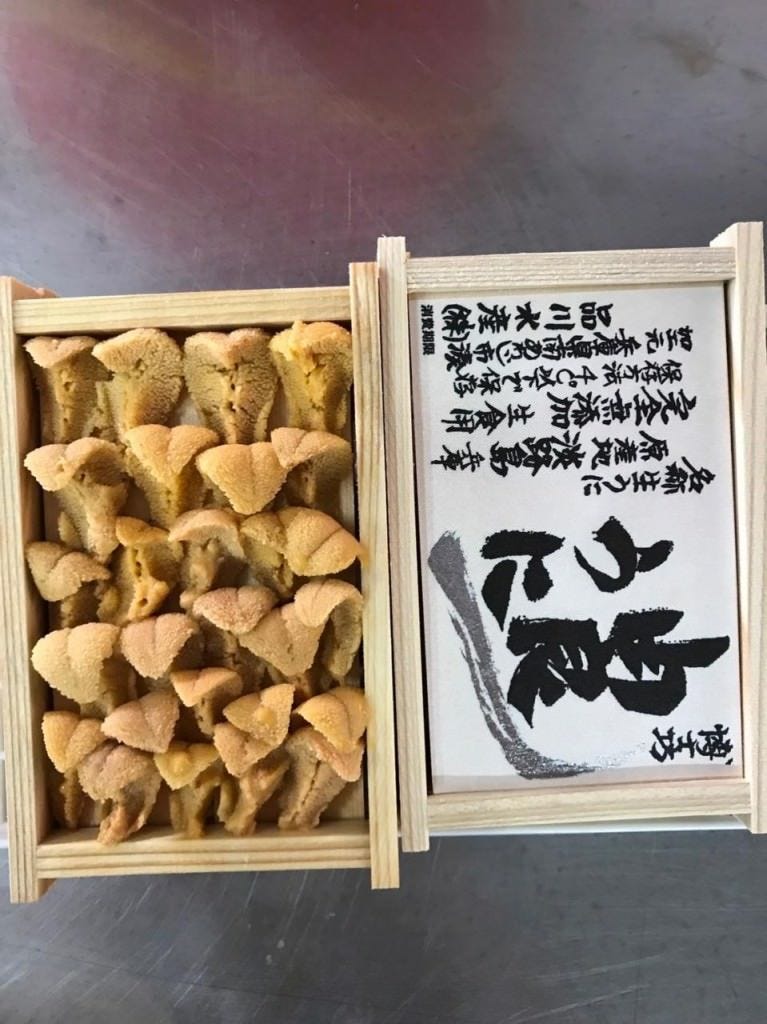 由良
うに
名称 生うに
原産地 淡路島 兵庫
完全無添加 生食用
保存方法 4℃以下で保存
加工元 兵庫県南あわじ市湊
品川水産
消費期限